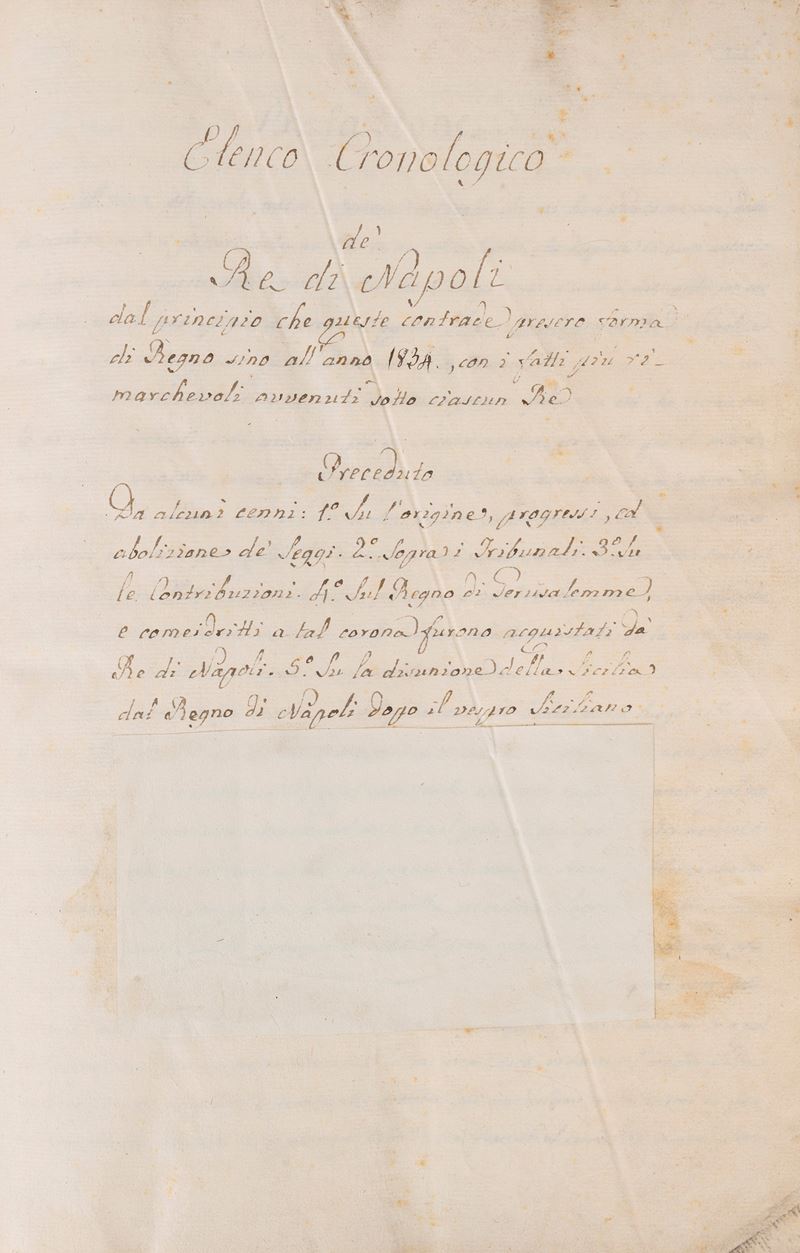 Elenco Cronologico
de'
Re di Napoli
dal principio che queste contrade presero forma
di Regno sino all'anno 1834., con i fatti più ri-
marchevoli avvenuti sotto ciascun Re
Preceduto
Da alcuni cenni: 1.º Su l'origine, progressi, ed
abolizione de' Seggi. 2.º Sopra i Tribunali. 3.º Su
le Contribuzioni. 4.º Sul Regno di Gerusalemme,
e come i dritti a tal corona furono acquistati da'
Re di Napoli. 5.º Su la disunione della Sicilia
dal Regno di Napoli dopo il vespro Siciliano